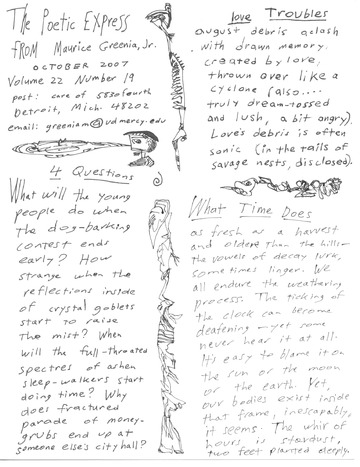 The Poetic Express
FROM Maurice Greenia, Jr.
OCTOBER 2007
Volume 22 Number 19
post: care of 5850 fourth
Detroit, Mich. 48202
email: greeniam@udmercy.edu
4 Questions
What will the young
people do when
the dog-barking
contest ends
early? How
strange when the
reflections inside
of crystal goblets
start to raise
the mist? When
will the full-throated
spectres of ashen
sleep-walkers start
doing time? Why
does fractured
parade of money-
grubs end up at
someone else's city hall?
love Troubles
august debris aclash
with drawn memory.
created by love,
thrown over like a
cyclone (also....
truly dream-tossed
and lush, a bit angry).
Love's debris is often
sonic (in the tails of
savage nests, disclosed).
What Time Does
as fresh as a harvest
and older than the hills—
the vowels of decay lurk,
sometimes linger. We
all endure the weathering
process. The ticking of
the clock can become
deafening—yet some
never hear it at all.
It's easy to blame it on
the sun or the moon
or the earth. Yet,
our bodies exist inside
that frame, inescapably,
it seems. The whir of
hours is stardust,
two feet planted deeply.